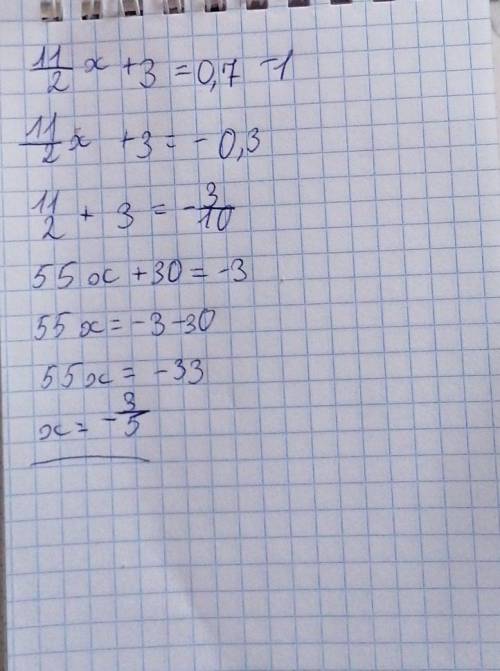 11/2 x + 3 = 0,7 - 1
11/2 x + 3 = - 0,3
11/2 + 3 = - 3/10
55 x + 30 = -3
55 x = -3 -30
55 x = -33
x = - 3/5